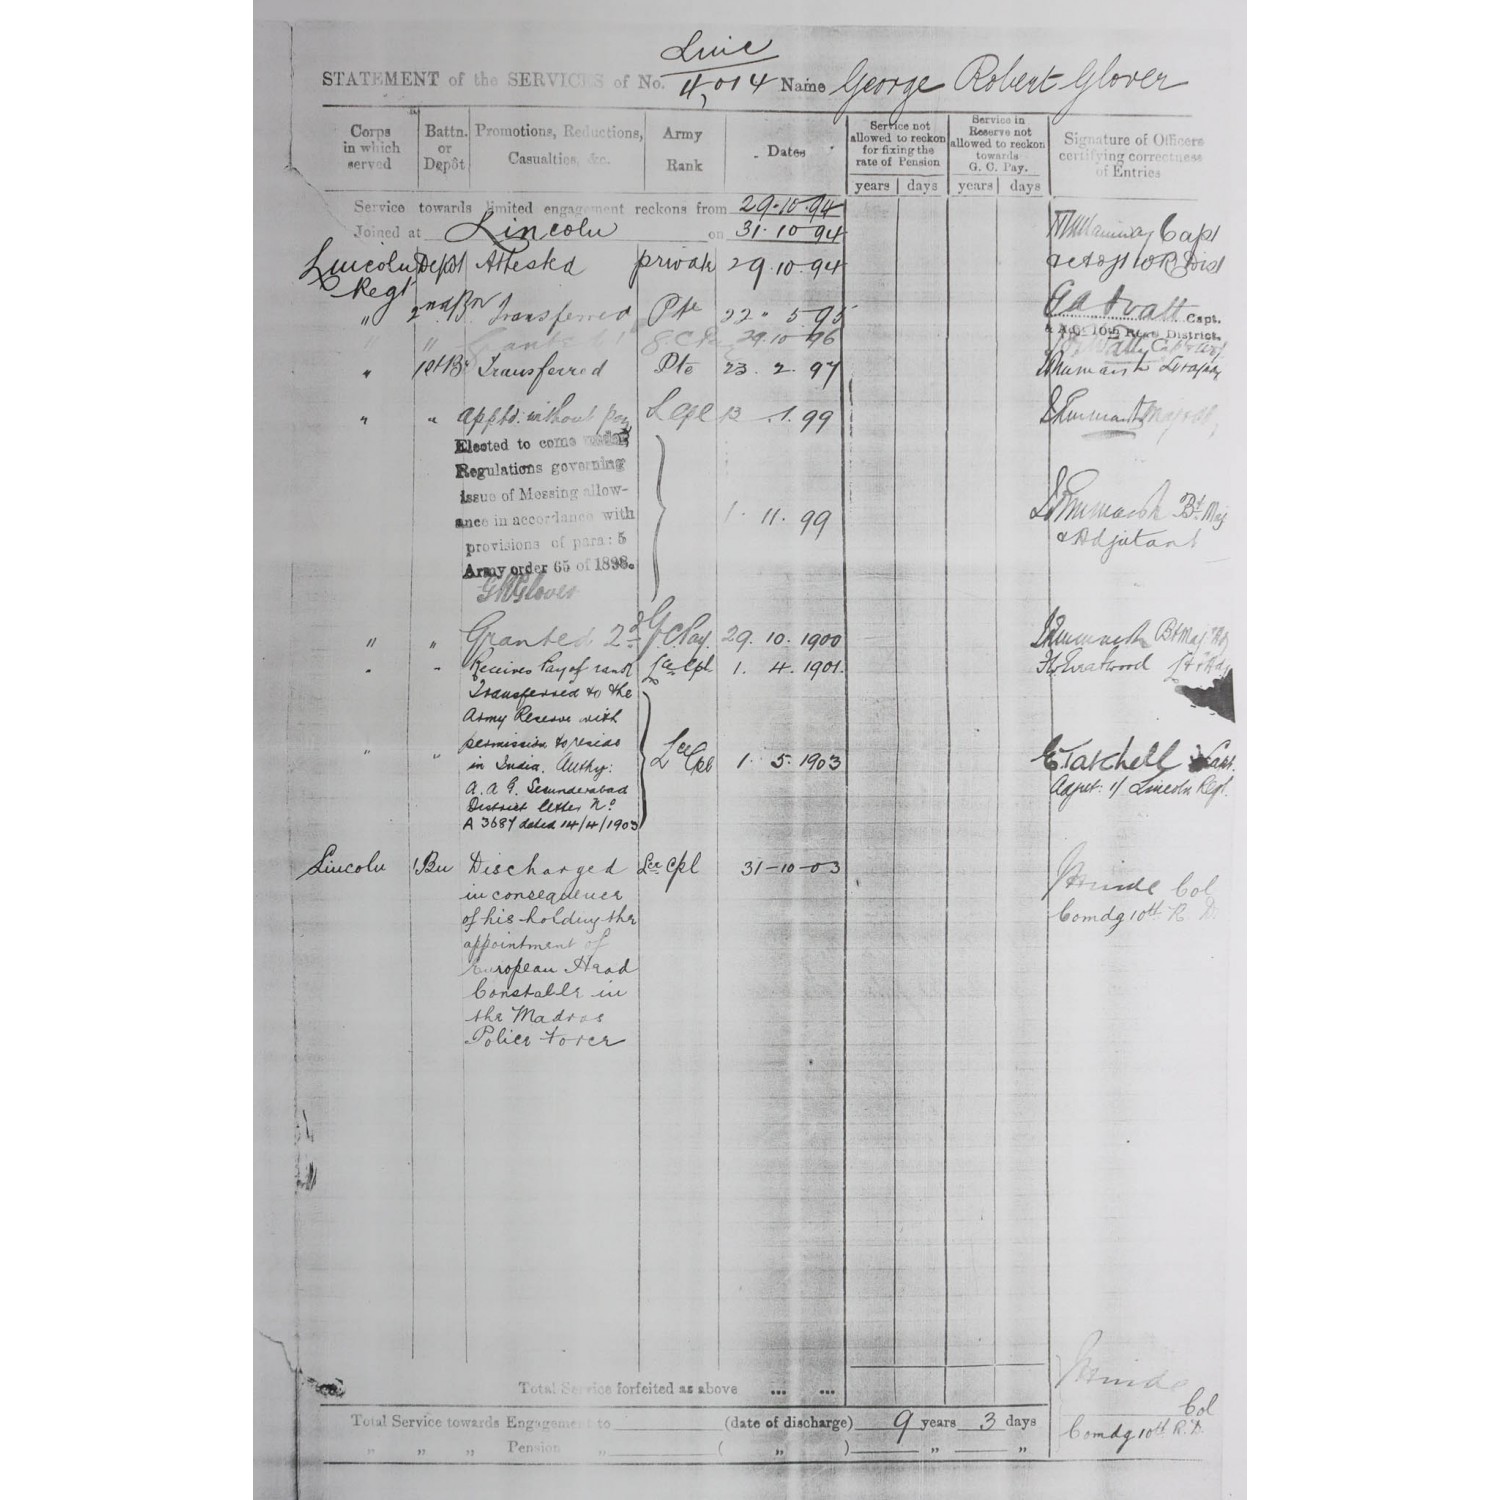 Linc
STATEMENT of the SERVICES of No. 4,014 Name George Robert Glover
Corps in which served
Battn. or Depôt
Promotions, Reductions, Casualties, &c.
Army Rank
Dates
Service not allowed to reckon for fixing the rate of Pension
Service in Reserve not allowed to reckon towards G. C. Pay.
Signature of Officers certifying correctness of Entries
years days years days
Service towards limited engagement reckons from 29.10.94
Joined at Lincoln on 31.10.94
Capt
Lincoln Depôt Attested private 29.10.94
Regt
" 2nd Bn Transferred Pte 22. 5.95
Capt.
A.A.G. 10th Regtl District.
" " Granted 1 G C Pay 29.10.96
" 1st Bn Transferred Pte 23. 2. 97
" " apptd: without pay L Cpl 13 .1.99
Elected to come under
Regulations governing
issue of Messing allow-
ance in accordance with
provisions of para: 5
Army order 65 of 1898.
GRGlover
1. 11. 99
Bt Maj
& Adjutant
" " Granted 2d G.C.Pay. 29. 10. 1900
" " Receives Pay of rank Lce Cpl 1. 4. 1901.
Transferred to the
Army Reserve with
permission to reside
in India. Authy:
A. A G. Secunderabad
District letter No
A 3687 dated 14/4/1903
" " Lce Cpl 1. 5. 1903
E Tatchell Capt.
Adjut: 1/ Lincoln Regt.
Lincoln 1 Bn Discharged Lce Cpl 31-10-03
in consequence
of his holding the
appointment of
European Head
Constable in
the Madras
Police Force
Col
Comdg 10th R. D.
Total Service forfeited as above ... ...
Total Service towards Engagement to (date of discharge) 9 years 3 days
" " " Pension " ( " ) " "
Col
Comdg 10th R.D.